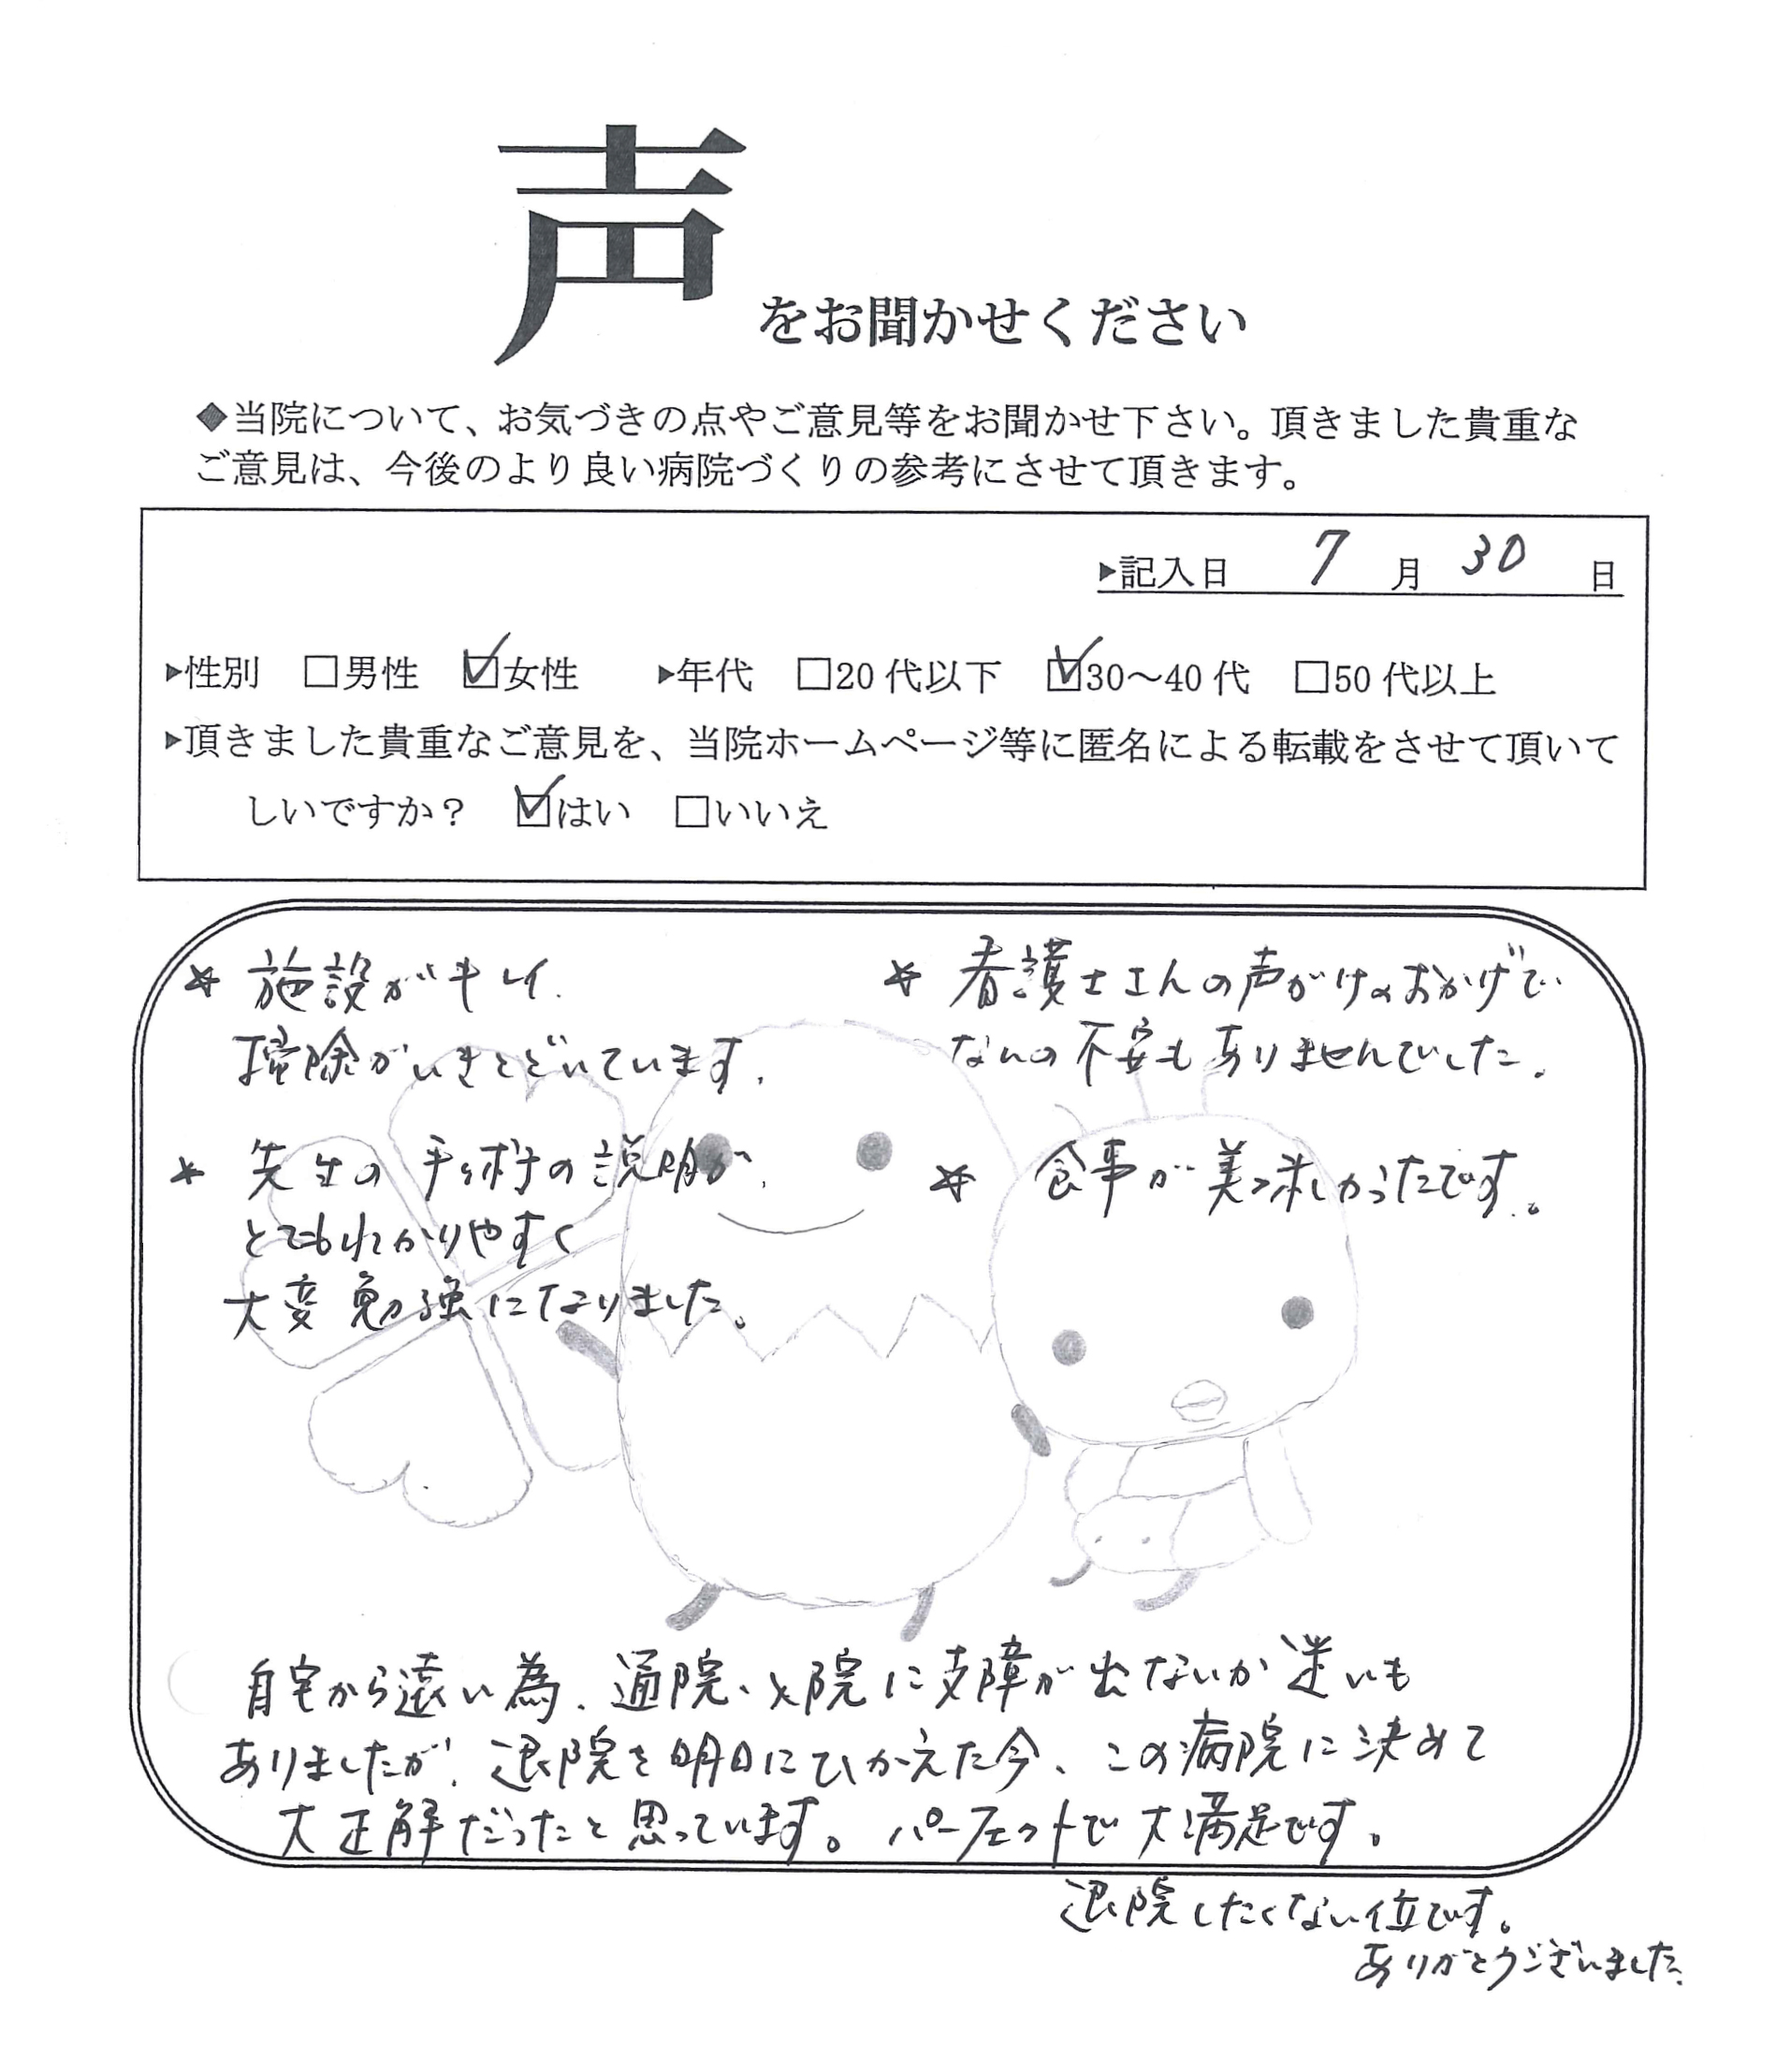 声をお聞かせください
◆当院について、お気づきの点やご意見等をお聞かせ下さい。頂きました貴重な
ご意見は、今後のより良い病院づくりの参考にさせて頂きます。
▶記入日 7 月 30 日
▶性別 □男性 ☑女性 ▶年代 □20代以下 ☑30～40代 □50代以上
▶頂きました貴重なご意見を、当院ホームページ等に匿名による転載をさせて頂いて
しいですか？ ☑はい □いいえ
☆ 施設がキレイ.
掃除がいきとどいています.
☆ 先生の 手術の説明が、
とてもわかりやすく
大変勉強になりました。
☆ 看護士さんの声がけのおかげで
なんの不安もありませんでした。
☆ 食事が美味しかったです。
自宅から遠い為、通院、入院に支障が出ないか迷いも
ありましたが、退院を明日にひかえた今、この病院に決めて
大正解だったと思っています。パーフェクトで大満足です。
退院したくない位です。
ありがとうございました.